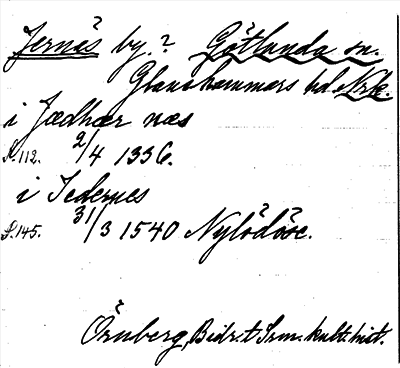 Jernäs by.? Götlunda sn.
Glanshammars hd Nrk.
i Jædhær næs
S. 112. 2/4 1336.
i Jedernes
S. 145. 31/3 1540 Nylödöse.
Örnberg, Bidr. t Srm. kult. hist.